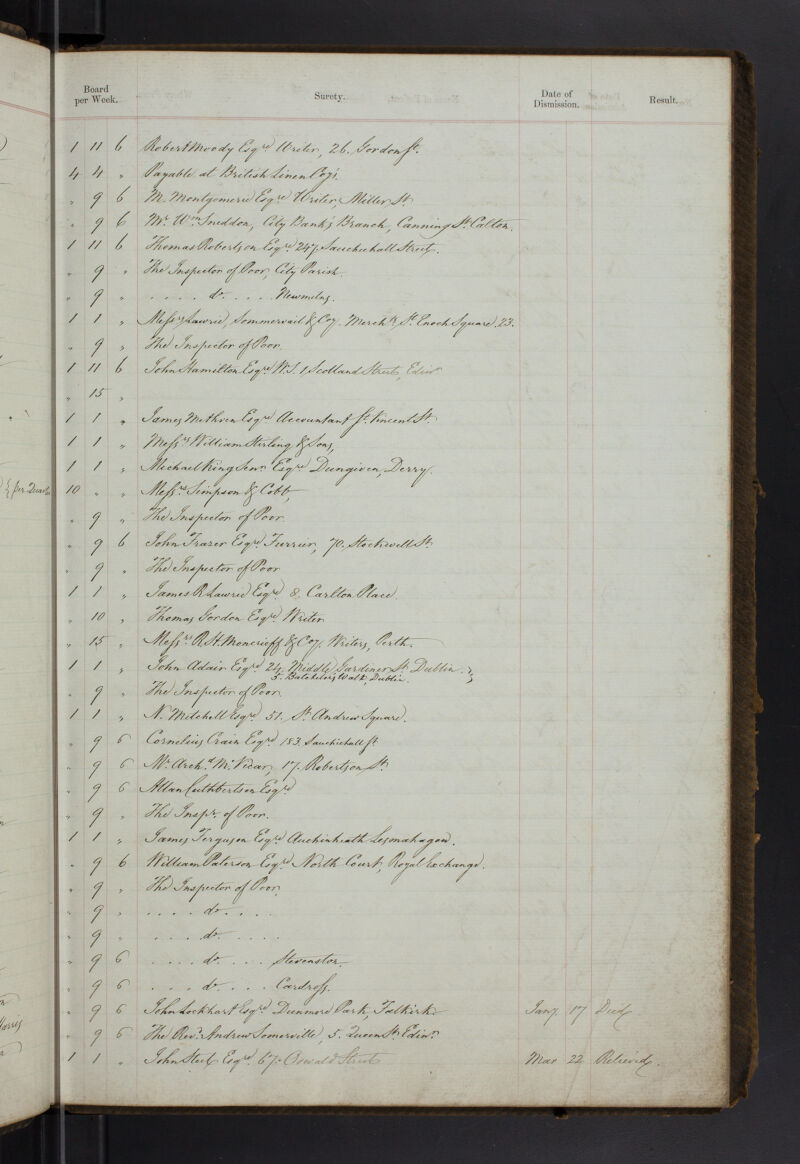 Board per Week. Surety. Date of Dismission. Result.
1 11 6 Robert Moody Esqre Writer, 26. Gordon St.
4 4 " Payable at British Linen Coy's
" 9 6 M. Montgomerie Esqre Writer, Miller St.
" 9 6 Mr. Wm. Sneddon, City Bank's Branch, Canning St. Calton.
1 11 6 Thomas Robertson Esqre 247. Sauchiehall Street.
" 9 " The Inspector of Poor, City Parish.
" 9 " . . . . do. . . . . Newmilns.
1 1 " Messrs Lawrie, Sommervail & Coy. Merchts. St. Enoch Square. 23.
" 9 " The Inspector of Poor.
1 11 6 John Hamilton Esqre W.S. 1, Scotland Street, Edinr.
" 15 "
1 1 " James Methven Esqre Accountant St. Vincent St.
1 1 " Messrs William Stirling & Sons,
1 1 " Michael King Senr. Esqre Dungiven, Derry.
per Quarter 10 " " Messrs. Simpson & Cobb,
" 9 " The Inspector of Poor.
" 9 6 John Frazer Esqre Furrier, 70. Stockwell St.
" 9 " The Inspector of Poor
1 1 " James R. Lawrie Esqre 8. Carlton Place.
" 10 " Thomas Gordon Esqre Writer.
" 15 " Messrs. R. & H. Moncrieff & Coy. Writers, Perth.
1 1 " John Adair Esqre 24. Middle Gardiner St. Dublin.
5. Batchelors Walk, Dublin.
" 9 " The Inspector of Poor.
1 1 " N. Mitchell Esqre 51. St. Andrew Square.
" 9 6 Cornelius Crain Esqre 183. Sauchiehall St
" 9 6 Mr. Archd. McVicar, 17. Robertson St.
" 9 6 Allan Cuthbertson Esqre
" 9 " The Inspr. of Poor.
1 1 " James Ferguson Esqre Auchinheath Lesmahagow.
" 9 6 William Paterson Esqre North Court, Royal Exchange.
" 9 " The Inspector of Poor.
" 9 " . . . . do. . . .
" 9 " . . . . do. . . .
" 9 6 . . . . do. . . . Stevenston.
" 9 6 . . . . do. . . . Cardross.
" 9 6 John Lockhart Esqre Dunmore Park, Falkirk. Jany. 17 Died
" 9 6 The Revd. Andrew Somerville, 5. Queen St. Edinr.
1 1 " John Steel Esqre. 67. Oswald Street Mar 22 Relieved.